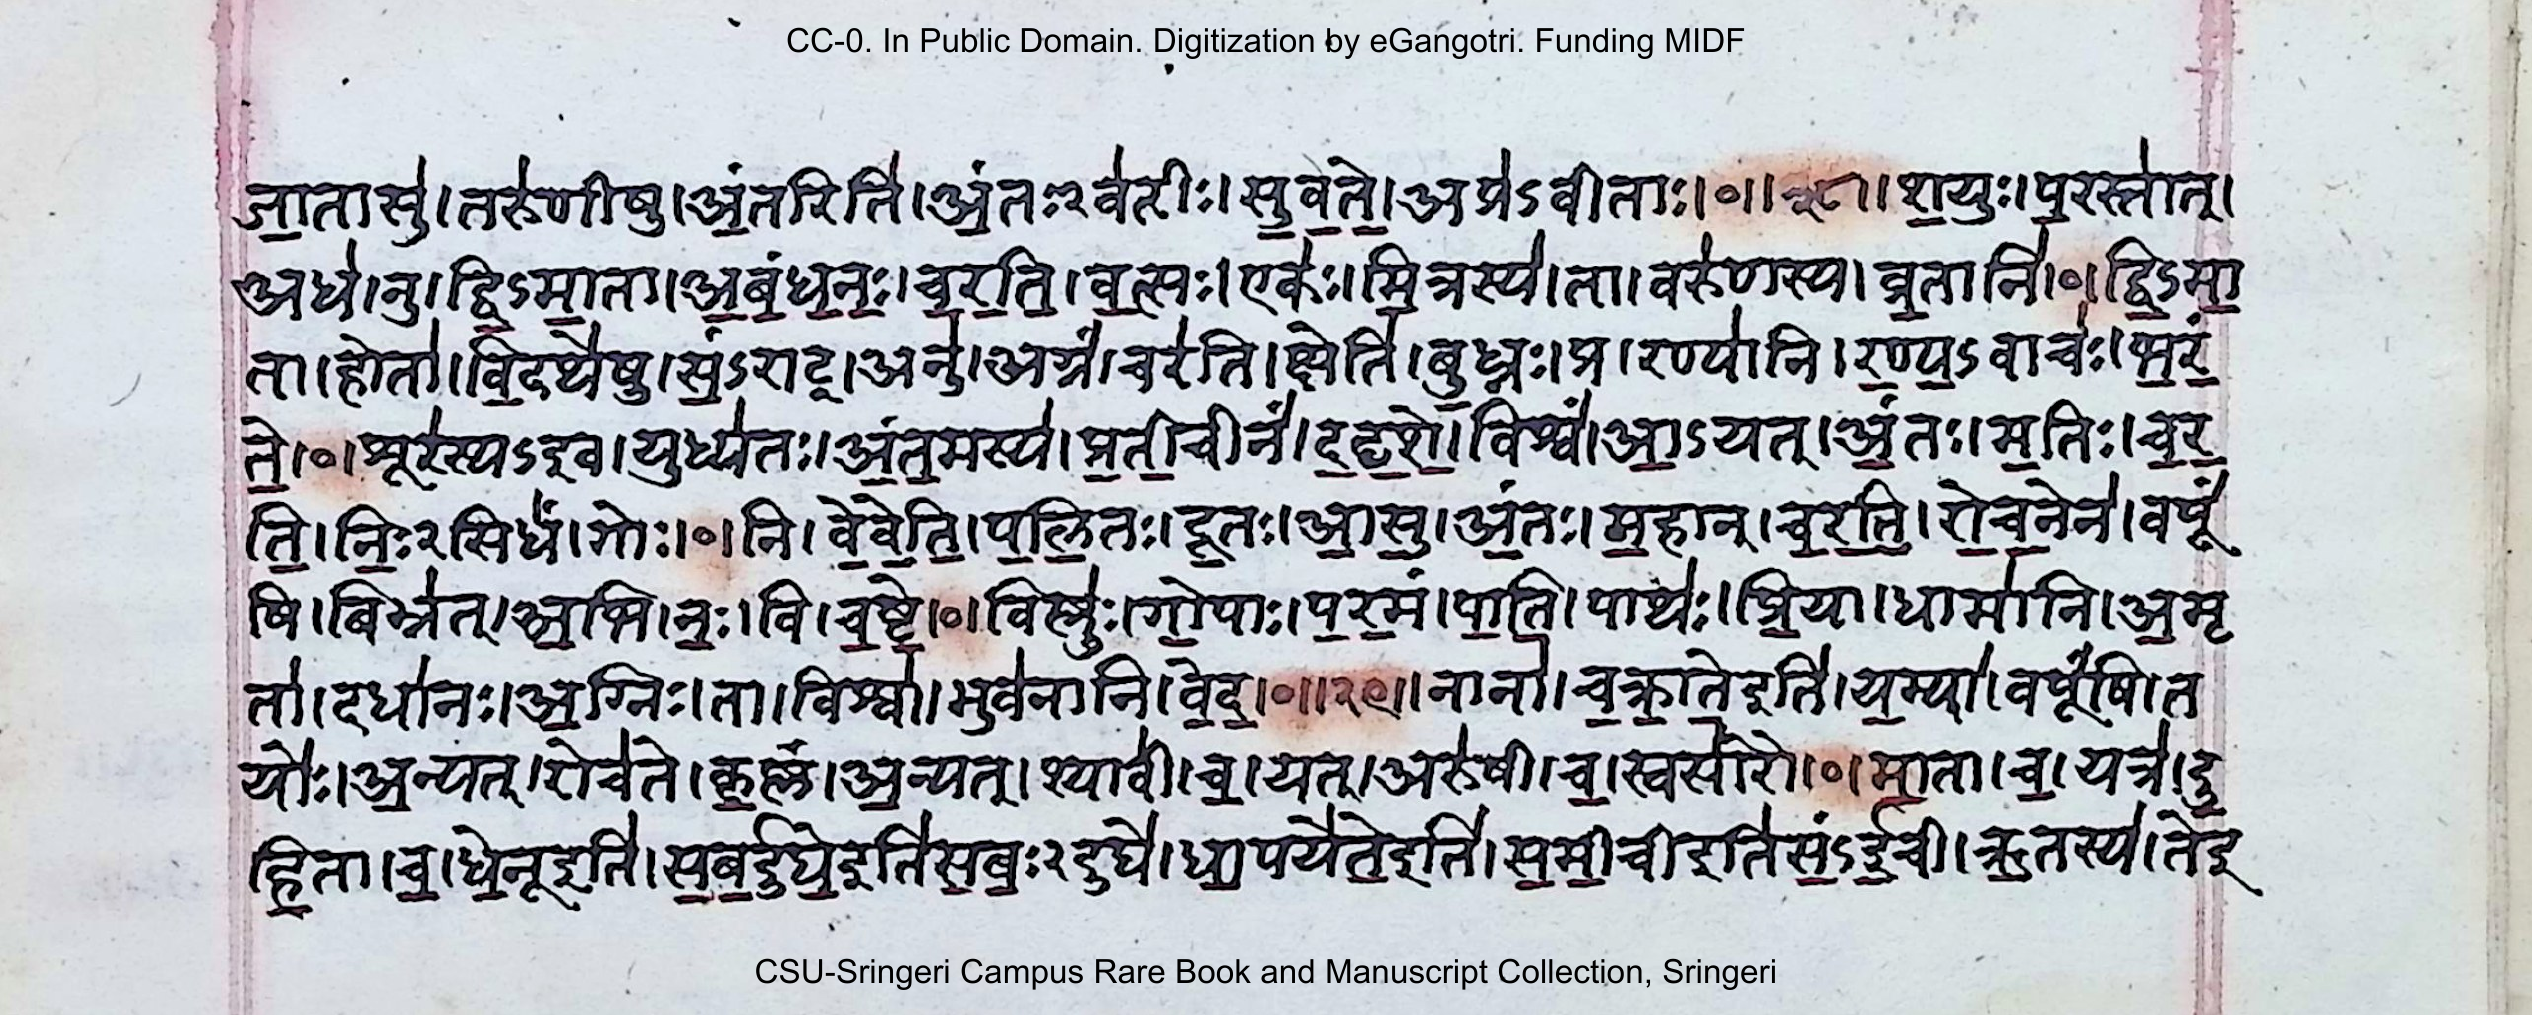 CC-0. In Public Domain. Digitization by eGangotri. Funding MIDF
जा॒तासु॑।तरु॑णीषु।अं॒तरिति॑।अं॒तः२व॑तीः।सु॒व॒ते॒।अप्र॑ऽवीताः।०।२८।श॒युः।पु॒रस्ता॑त्।
अध॑।नु।द्वि॒ऽमा॒ता।अ॒बं॒ध॒नः॒।च॒र॒ति॒।व॒त्सः।एकः॑।मि॒त्रस्य॑।ता।वरु॑णस्य।व्र॒तानि॑।०।द्वि॒ऽमा॒
ता।होता॑।वि॒दथे॑षु।सं॒ऽराट्।अनु॑।अग्रं॑।चर॑ति।क्षेति॑।बु॒ध्नः।प्र।रण्या॑नि।र॒ण्य॒ऽवाचः॑।भ॒रं॒
ते॒।०।शूर॑स्यऽइव।युध्य॑तः।अं॒त॒मस्य॑।प्र॒ती॒चीनं॑।द॒दृ॒शे॒।विश्वं॑।आ॒ऽयत्।अं॒तः।म॒तिः।च॒र॒
ति॒।निः॒२सिधं॑।गोः।०।नि।वे॒वे॒ति॒।प॒लि॒तः।दू॒तः।आ॒सु॒।अं॒तः।म॒हान्।च॒र॒ति॒।रो॒च॒नेन॑।वपूं॑
षि।बिभ्र॑त्।अ॒भि।नः॒।वि।च॒ष्टे॒।०।विष्णुः॑।गो॒पाः।प॒र॒मं।पा॒ति॒।पाथः॑।प्रि॒या।धामा॑नि।अ॒मृ
ता॑।दधा॑नः।अ॒ग्निः।ता।विश्वा॑।भुव॑नानि।वे॒द॒।०।२९।नाना॑।च॒क्रा॒ते॒इति॑।य॒म्या॑।वपूं॑षि।त
योः॑।अ॒न्यत्।रोच॑ते।कृ॒ष्णं।अ॒न्यत्।श्यावी॑।च॒।यत्।अरु॑षी।च॒।स्वसा॑रौ।०।मा॒ता।च॒।यत्र॑।दु॒
हि॒ता।च॒।धे॒नूइति॑।स॒ब॒र्दुघे॒इति॑स॒बः॒२दुघे॑।धा॒पये॑ते॒इति॑।स॒मी॒चीइति॑सं॒ऽई॒ची।ऋ॒तस्य॑।तेइ
CSU-Sringeri Campus Rare Book and Manuscript Collection, Sringeri